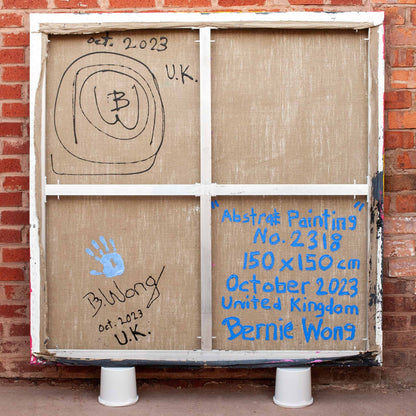 Oct. 2023
U.K.
B
W
B. Wong
Oct. 2023
U.K.
"Abstract Painting"
No. 2318
150 x 150 cm
October 2023
United Kingdom
Bernie Wong